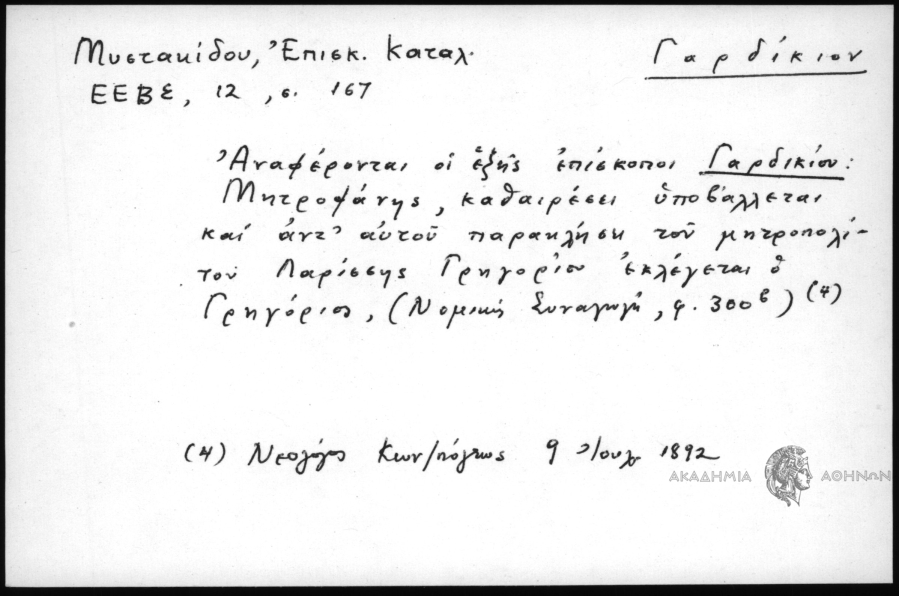 Μυστακίδου, Ἐπισκ. Καταλ.
Γαρδίκιον
ΕΕΒΣ, 12, σ. 167
Ἀναφέρονται οἱ ἑξῆς ἐπίσκοποι Γαρδικίου:
Μητροφάνης, καθαιρέσει ὑποβάλλεται
καί ἀντ' αὐτοῦ παρακλήσει τοῦ μητροπολί-
του Λαρίσσης Γρηγορίου ἐκλέγεται ὁ
Γρηγόριος, (Νομική Συναγωγή, φ. 300β) (4)
(4) Νεολόγος Κων/πόλεως 9 Ἰουλ. 1892
ΑΚΑΔΗΜΙΑ ΑΘΗΝΩΝ